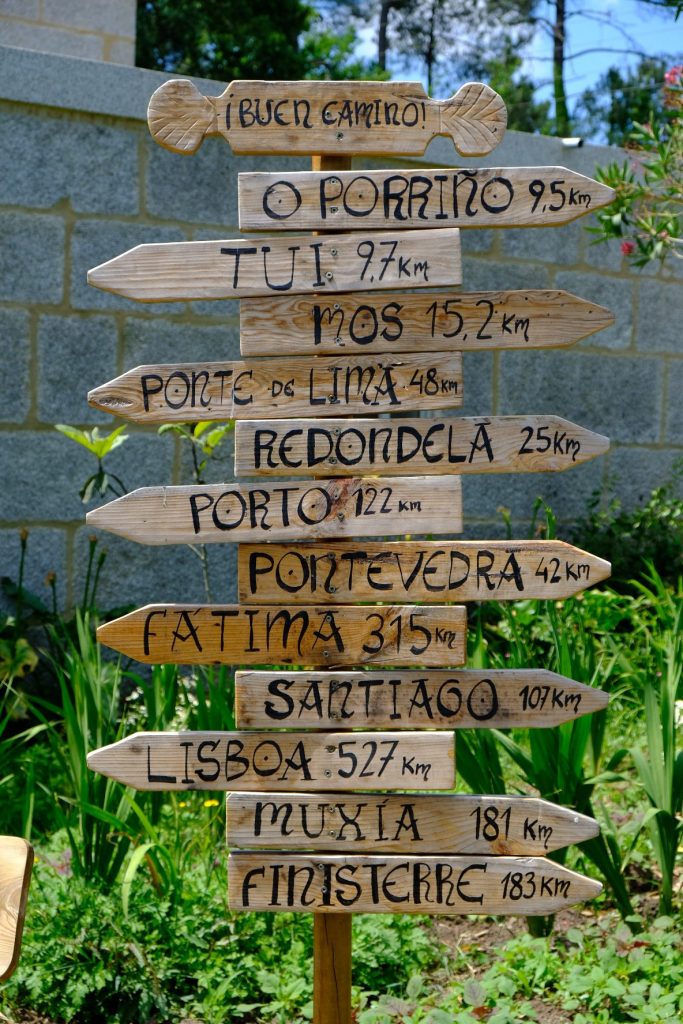 ¡BUEN CAMINO!
O PORRIÑO 9,5 KM
TUI 9,7 KM
MOS 15,2 KM
PONTE DE LIMA 48 KM
REDONDELA 25 KM
PORTO 122 KM
PONTEVEDRA 42 KM
FÁTIMA 315 KM
SANTIAGO 107 KM
LISBOA 527 KM
MUXÍA 181 KM
FINISTERRE 183 KM